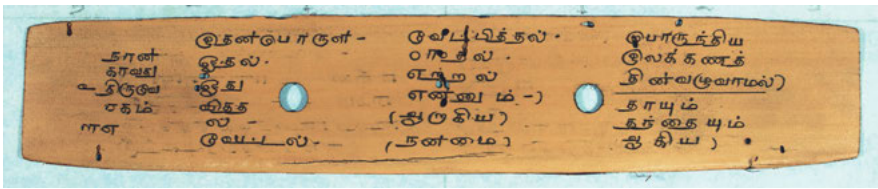 நான்
காவது
உதிருவே
சகம்
ஈஎ
இதன்பொருள் -
ஓதல்.
ஓது
வித்த
ல்
வேட்டல்.
வேட்பித்தல்.
ஈதல்.
ஏற்றல்
என்னும்-)
(ஆறாகிய)
(நன்மை)
பொருந்திய
இலக்கணத்
தின்வழுவாமல்)
தாயும்
தந்தையும்
ஆகிய)